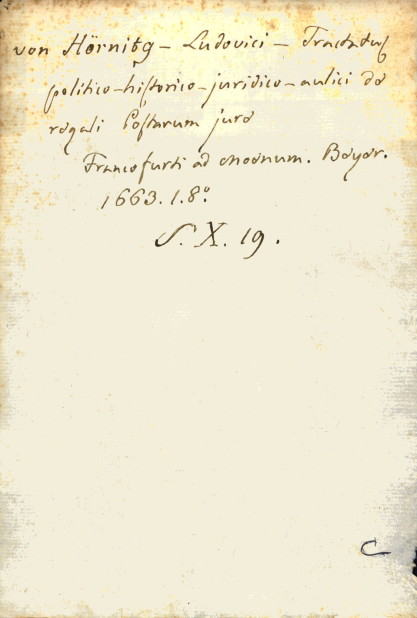 von Hörnitg - Ludovici - Tractatus
politico-historico-juridico-aulici de
regali Postarum jure
Francofurti ad Moenum. Beyer.
1663. 1. 8º
S. X. 19.
C